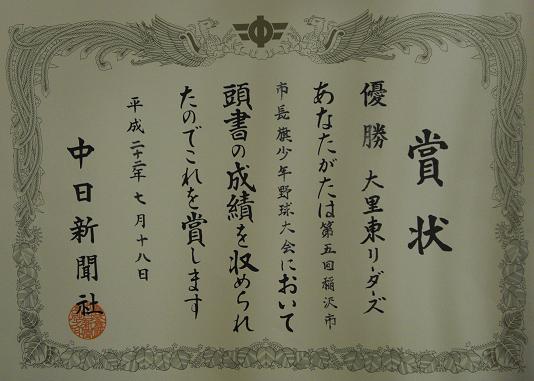 賞状
優勝 大里東リーダーズ
あなたがたは第五回稲沢市
市長旗少年野球大会において
頭書の成績を収められ
たのでこれを賞します
平成二十二年七月十八日
中日新聞社